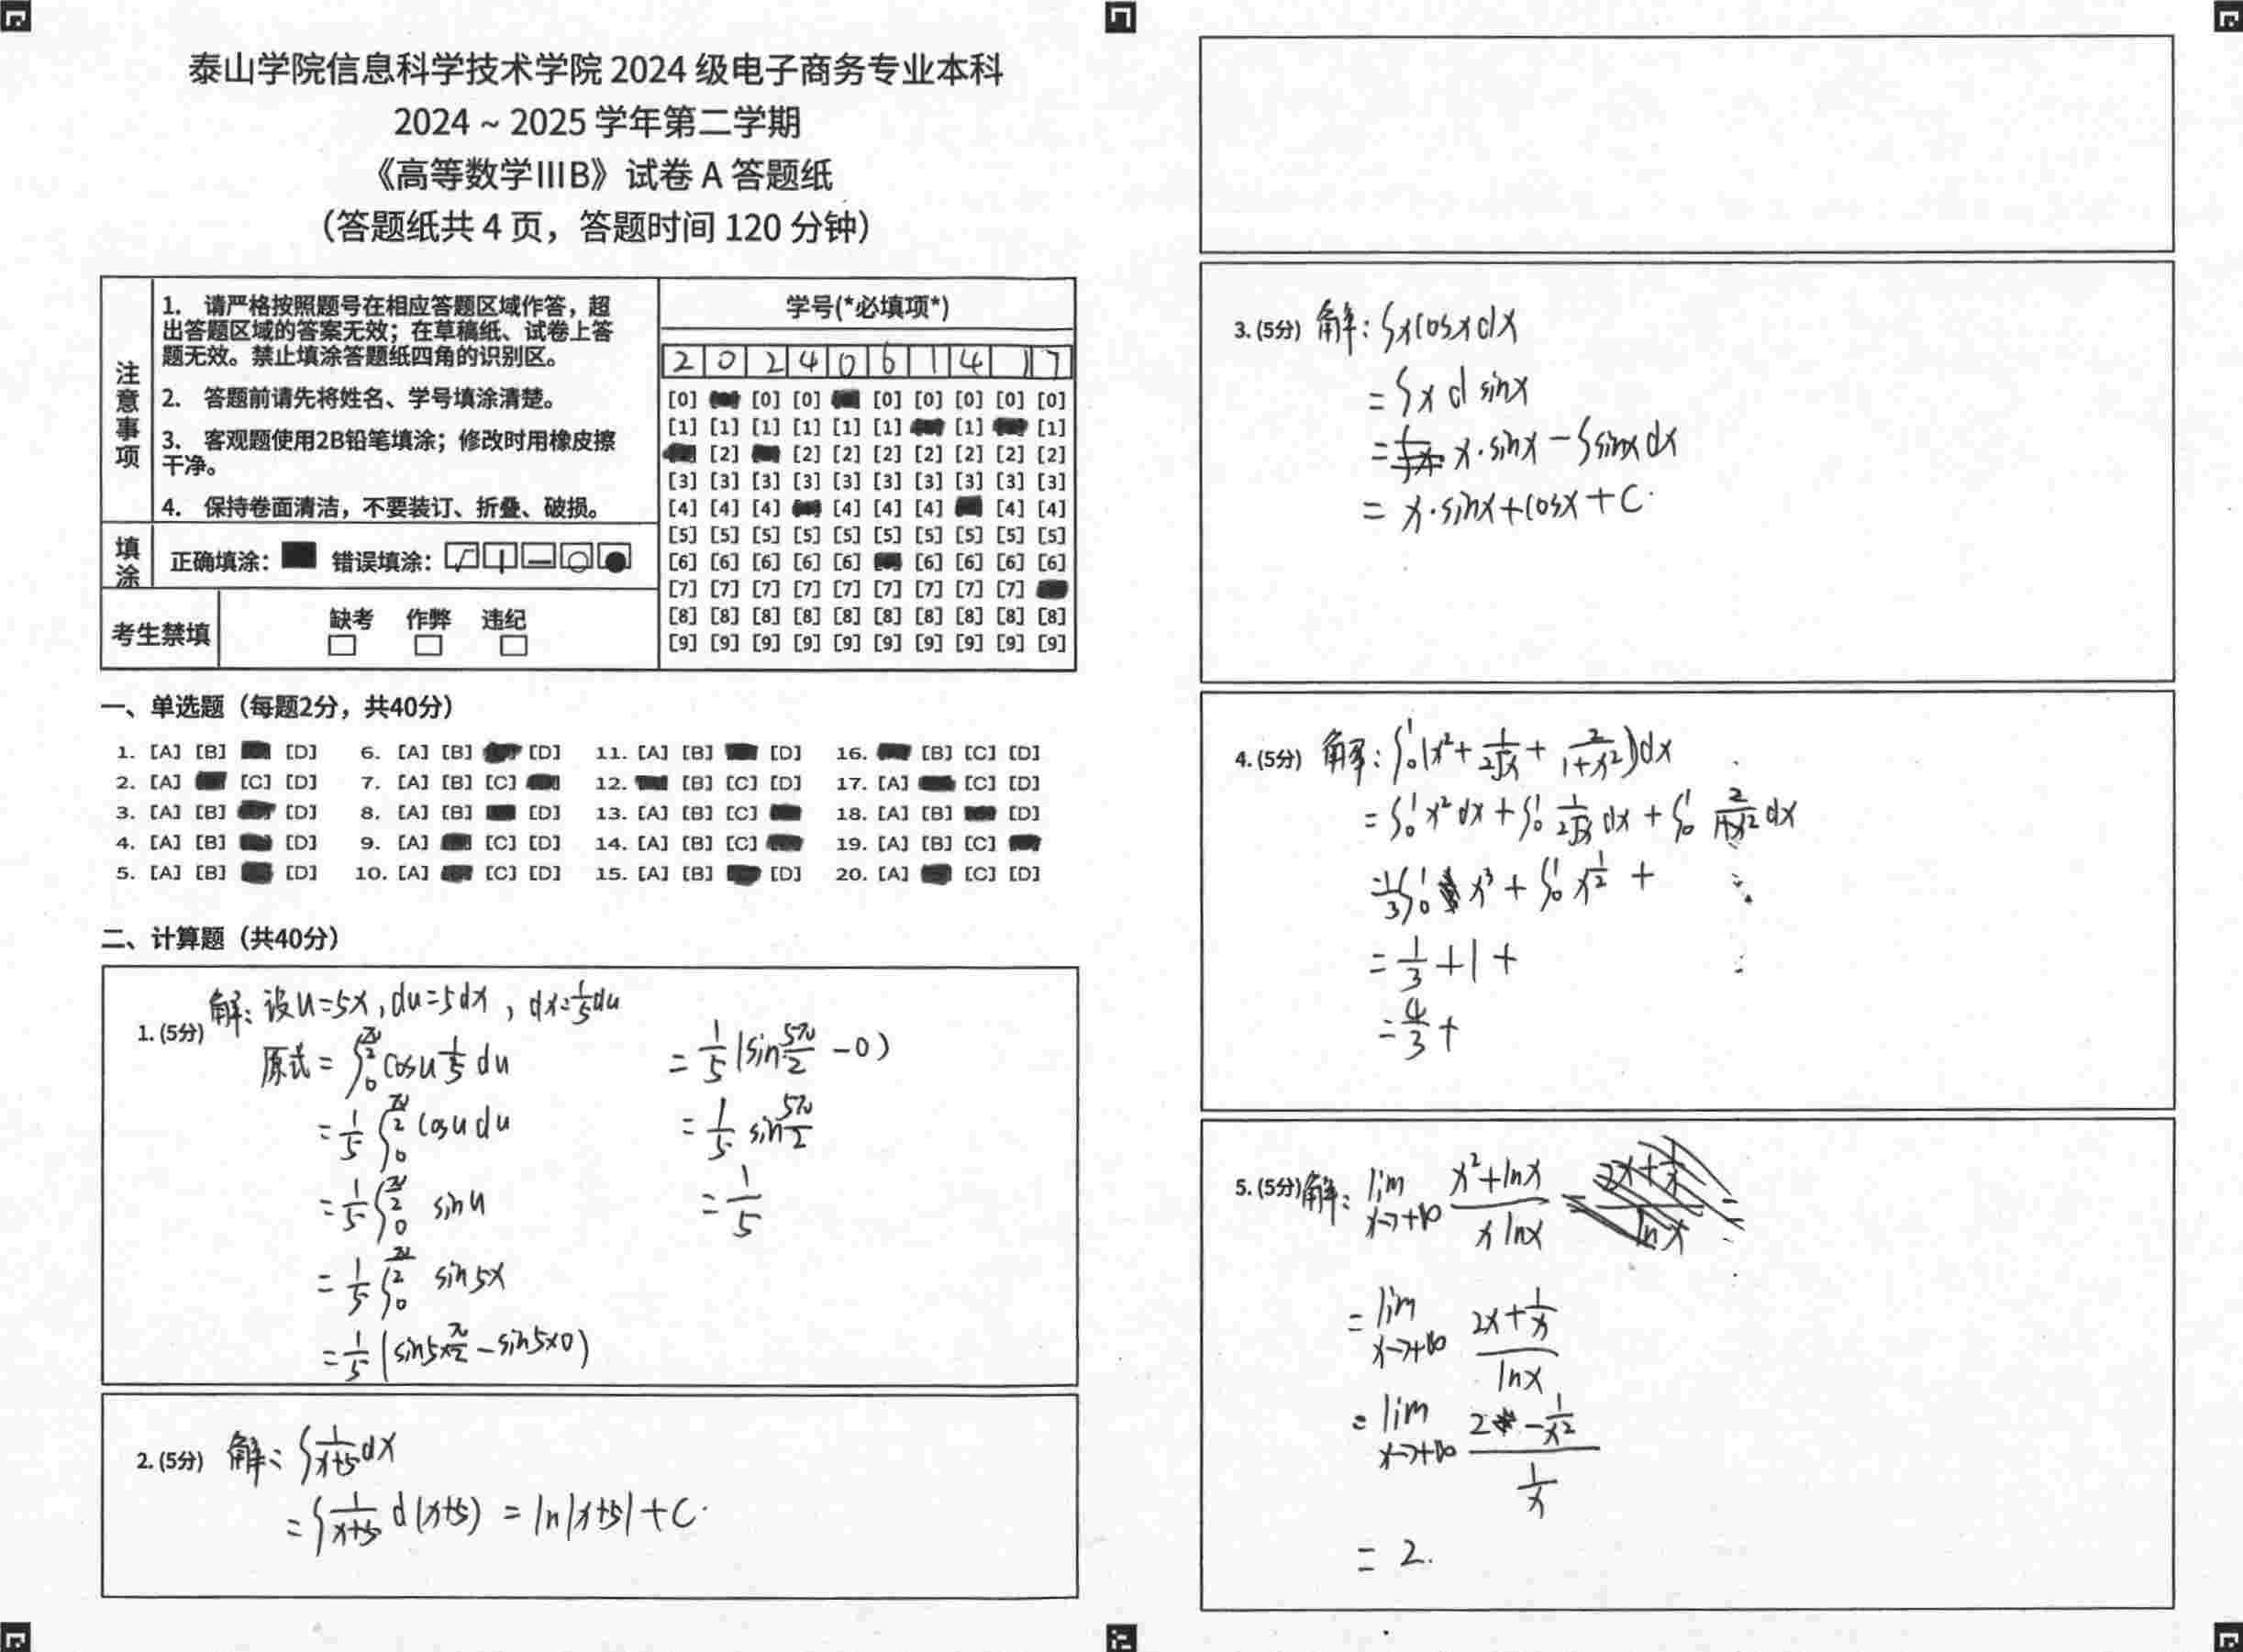 泰山学院信息科学技术学院 2024 级电子商务专业本科
2024 ~ 2025 学年第二学期
《高等数学IIIB》试卷 A 答题纸
（答题纸共 4 页，答题时间 120 分钟）
注意事项
1. 请严格按照题号在相应答题区域作答，超
出答题区域的答案无效；在草稿纸、试卷上答
题无效。禁止填涂答题纸四角的识别区。
2. 答题前请先将姓名、学号填涂清楚。
3. 客观题使用2B铅笔填涂；修改时用橡皮擦
干净。
4. 保持卷面清洁，不要装订、折叠、破损。
填涂
正确填涂： 错误填涂：
考生禁填
缺考 作弊 违纪
学号(*必填项*)
2 0 2 4 0 6 1 4 1 7
[0] [0] [0] [0] [0] [0] [0] [0]
[1] [1] [1] [1] [1] [1] [1] [1]
[2] [2] [2] [2] [2] [2] [2] [2]
[3] [3] [3] [3] [3] [3] [3] [3] [3] [3]
[4] [4] [4] [4] [4] [4] [4] [4]
[5] [5] [5] [5] [5] [5] [5] [5] [5] [5]
[6] [6] [6] [6] [6] [6] [6] [6] [6]
[7] [7] [7] [7] [7] [7] [7] [7] [7]
[8] [8] [8] [8] [8] [8] [8] [8] [8] [8]
[9] [9] [9] [9] [9] [9] [9] [9] [9] [9]
一、单选题（每题2分，共40分）
1. [A] [B] [D] 6. [A] [B] [D] 11. [A] [B] [D] 16. [B] [C] [D]
2. [A] [C] [D] 7. [A] [B] [C] 12. [B] [C] [D] 17. [A] [C] [D]
3. [A] [B] [D] 8. [A] [B] [D] 13. [A] [B] [C] 18. [A] [B] [D]
4. [A] [B] [D] 9. [A] [C] [D] 14. [A] [B] [C] 19. [A] [B] [C]
5. [A] [B] [D] 10. [A] [C] [D] 15. [A] [B] [D] 20. [A] [C] [D]
二、计算题（共40分）
1. (5分) 解：设u=5x, du=5dx, dx=1/5 du
原式=∫₀^(π/2) cosu 1/5 du
=1/5 ∫₀^(π/2) cosu du
=1/5 ∫₀^(π/2) sinu
=1/5 ∫₀^(π/2) sin5x
=1/5 (sin5×π/2 - sin5×0)
=1/5 (sin 5π/2 - 0)
=1/5 sin 5π/2
=1/5
2. (5分) 解：∫ 1/(x+5) dx
=∫ 1/(x+5) d(x+5) = ln|x+5|+C.
3. (5分) 解：∫xcosxdx
=∫x d sinx
= x·sinx-∫sinxdx
= x·sinx+cosx+C.
4. (5分) 解：∫₀¹(x²+1/(2√x)+2/(1+x²))dx
=∫₀¹x²dx+∫₀¹ 1/(2√x) dx+∫₀¹ 2/(1+x²) dx
=1/3∫₀¹ x³+∫₀¹ x^(1/2) +
=1/3+1+
=4/3+
5. (5分) 解：lim x→+∞ (x²+lnx)/(x lnx)
=lim x→+∞ (2x+1/x)/lnx
=lim x→+∞ (2-1/x²)/(1/x)
= 2.